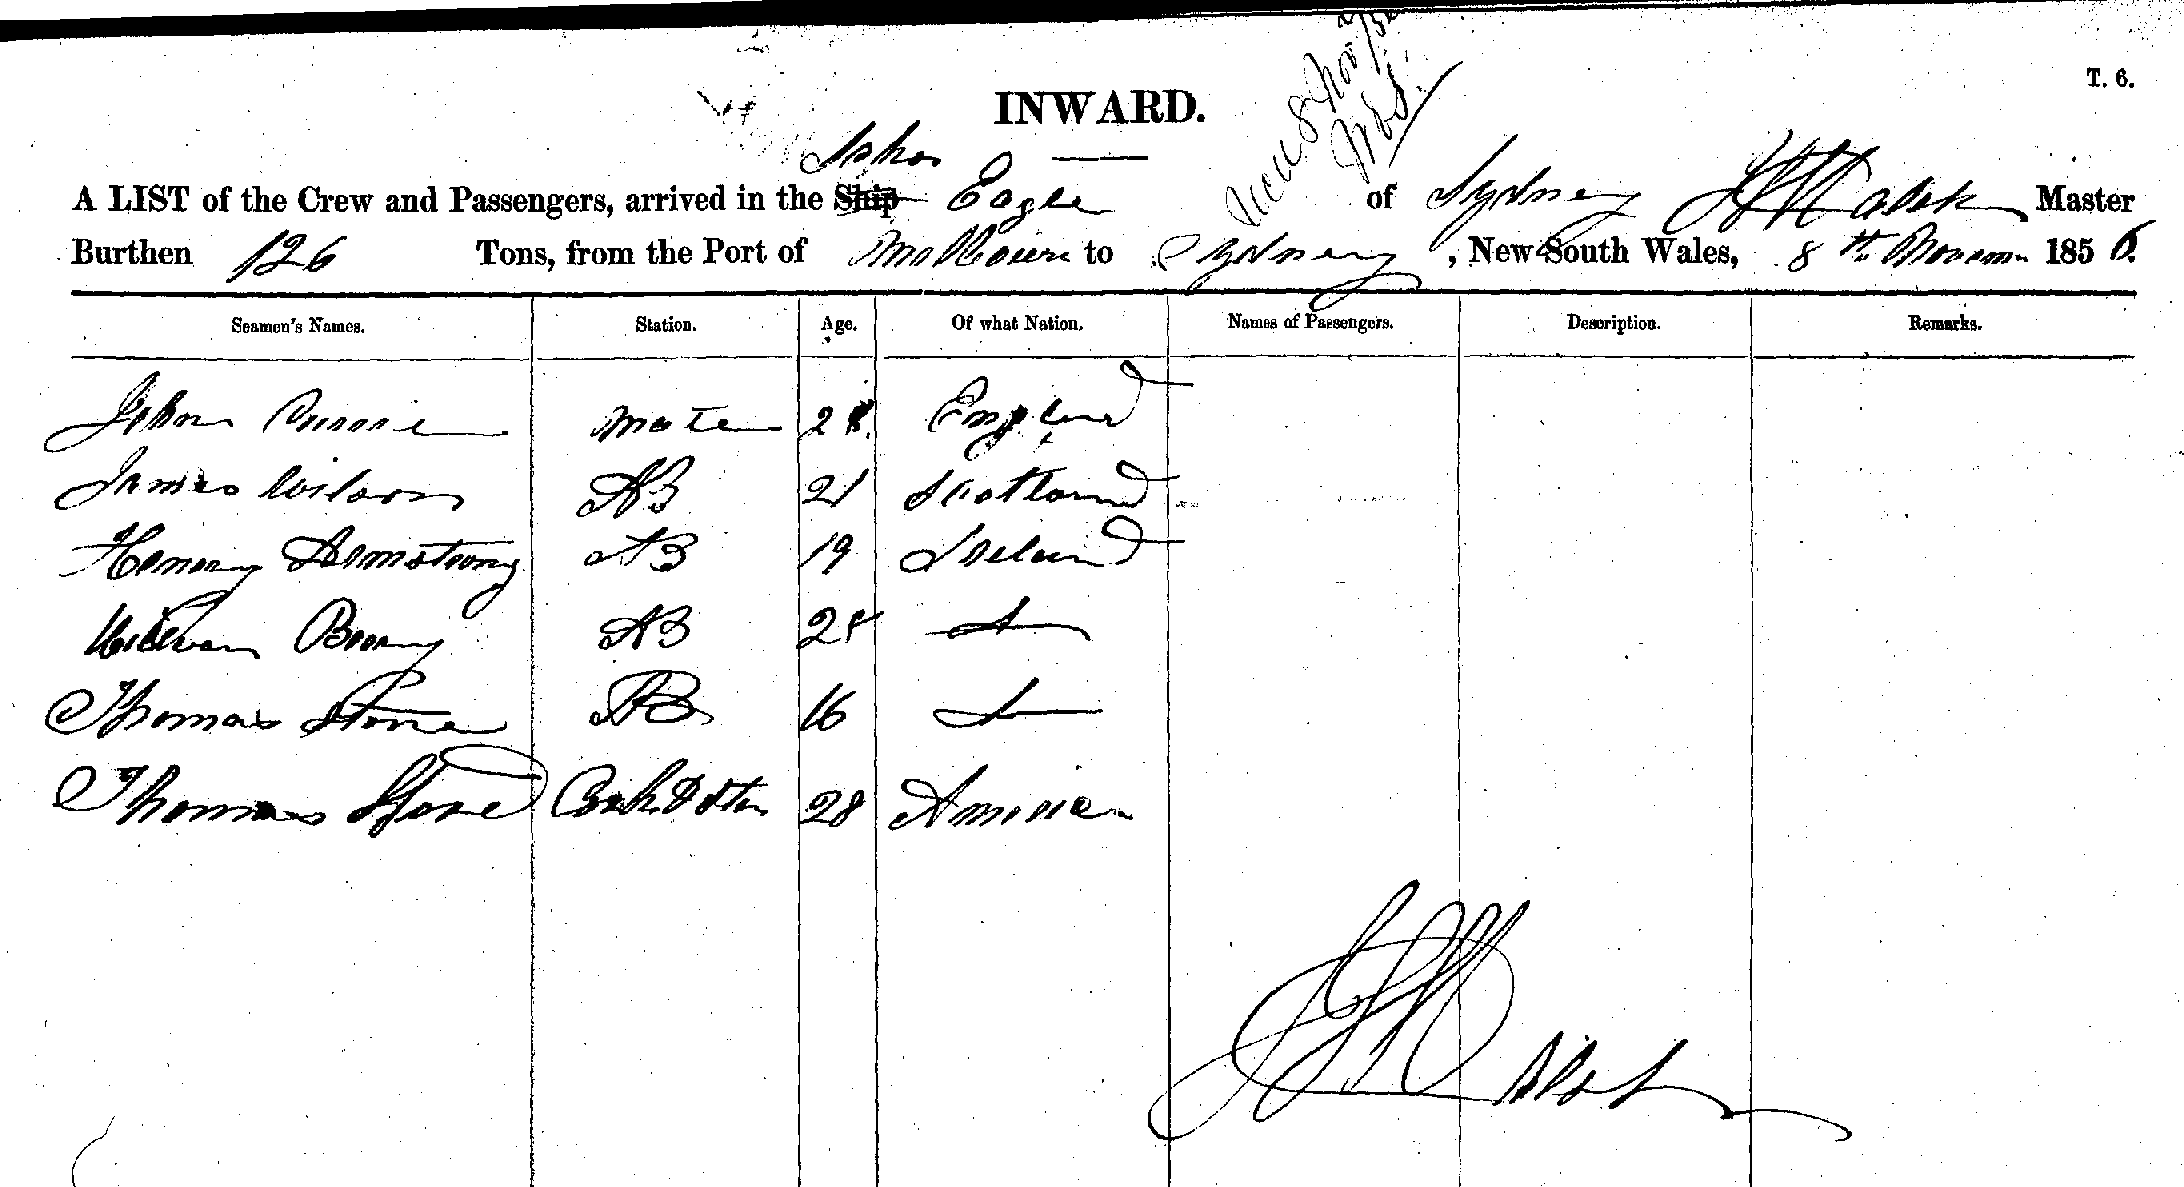 T. 6.
INWARD.
Schr
A LIST of the Crew and Passengers, arrived in the Ship Eagle of Sydney Master
Burthen 126 Tons, from the Port of to Sydney, New South Wales, 8th Novem 1856.
Seamen's Names. Station. Age. Of what Nation. Names of Passengers. Description. Remarks.
John Mate 28 England
James Wilson AB 21 Scotland
Henry Armstrong AB 19 Ireland
William AB
Thomas Stone AB 16
Thomas 28 America